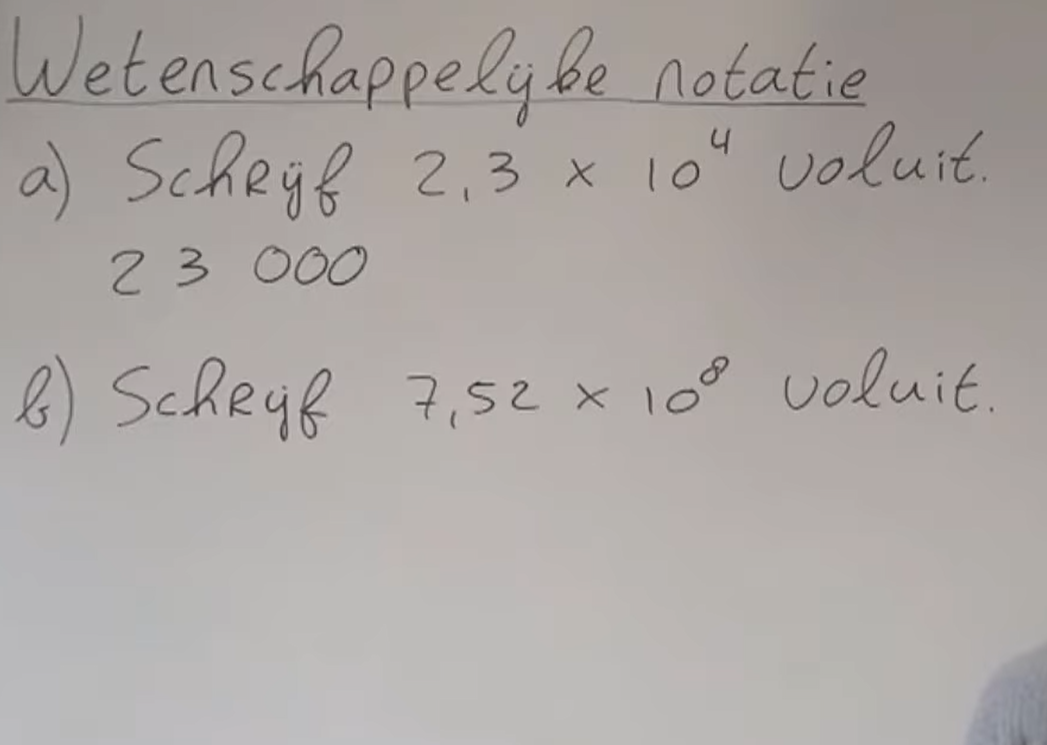 Wetenschappelijke notatie
a) Schrijf 2,3 x 10⁴ voluit.
23 000
b) Schrijf 7,52 x 10⁸ voluit.